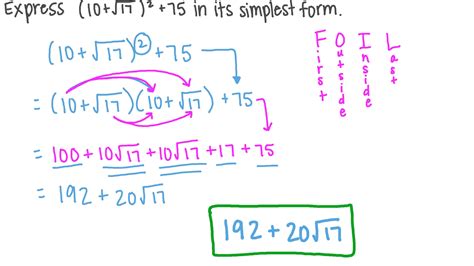 Express (10+√17)²+75 in its simplest form.
(10+√17)²+75
= (10+√17)(10+√17)+75
= 100+10√17+10√17+17+75
= 192+20√17
192+20√17
First
Outside
Inside
Last